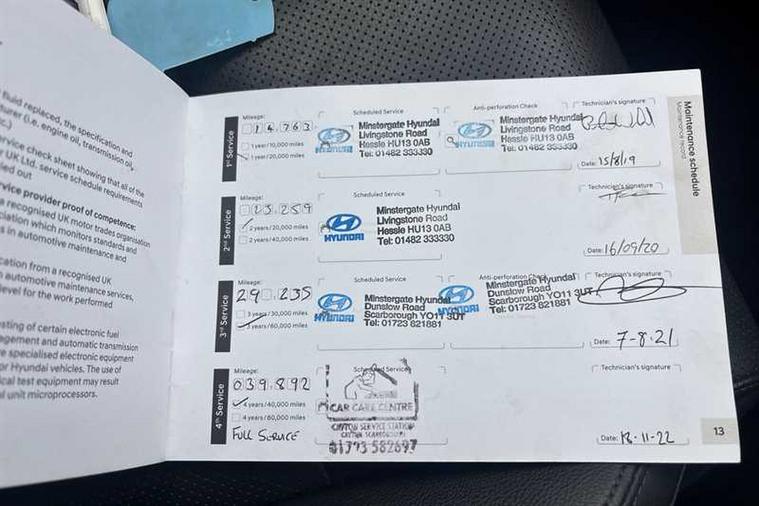 fluid replaced, the specification and
(i.e. engine oil, transmission oil,
etc.)
service check sheet showing that all of the
UK Ltd. service schedule requirements
out
service provider proof of competence:
a recognised UK motor trades organisation
which monitors standards and
in automotive maintenance and
from a recognised UK
automotive maintenance services,
level for the work performed
testing of certain electronic fuel
management and automatic transmission
specialised electronic equipment
Hyundai vehicles. The use of
test equipment may result
unit microprocessors.
Maintenance schedule
Maintenance record
1st Service
Mileage:
14,763
1 year/10,000 miles
1 year/20,000 miles
Scheduled Service
HYUNDAI
Minstergate Hyundai
Livingstone Road
Hessle HU13 0AB
Tel: 01482 333330
Anti-perforation Check
HYUNDAI
Minstergate Hyundai
Livingstone Road
Hessle HU13 0AB
Tel: 01482 333330
Technician's signature
Date: 15/8/19
2nd Service
Mileage:
23,259
2 years/20,000 miles
2 years/40,000 miles
Scheduled Service
HYUNDAI
Minstergate Hyundai
Livingstone Road
Hessle HU13 0AB
Tel: 01482 333330
Technician's signature
Date: 16/09/20
3rd Service
Mileage:
29,235
3 years/30,000 miles
3 years/60,000 miles
Scheduled Service
HYUNDAI
Minstergate Hyundai
Dunslow Road
Scarborough YO11 3UT
Tel: 01723 821881
Anti-perforation Check
HYUNDAI
Minstergate Hyundai
Dunslow Road
Scarborough YO11 3UT
Tel: 01723 821881
Technician's signature
Date: 7-8-21
4th Service
Mileage:
039,892
4 years/40,000 miles
4 years/80,000 miles
FULL SERVICE
Scheduled Service
CAR CARE CENTRE
CAYTON SERVICE STATION
CAYTON SCARBOROUGH
01723 582697
Technician's signature
Date: 18-11-22
13